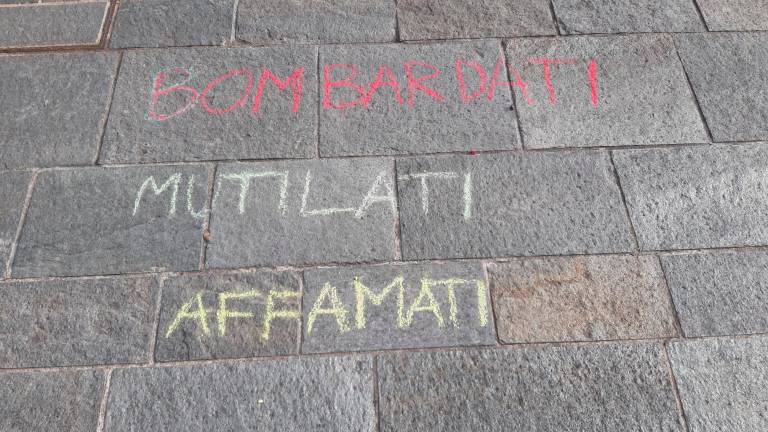 BOMBARDATI
MUTILATI
AFFAMATI